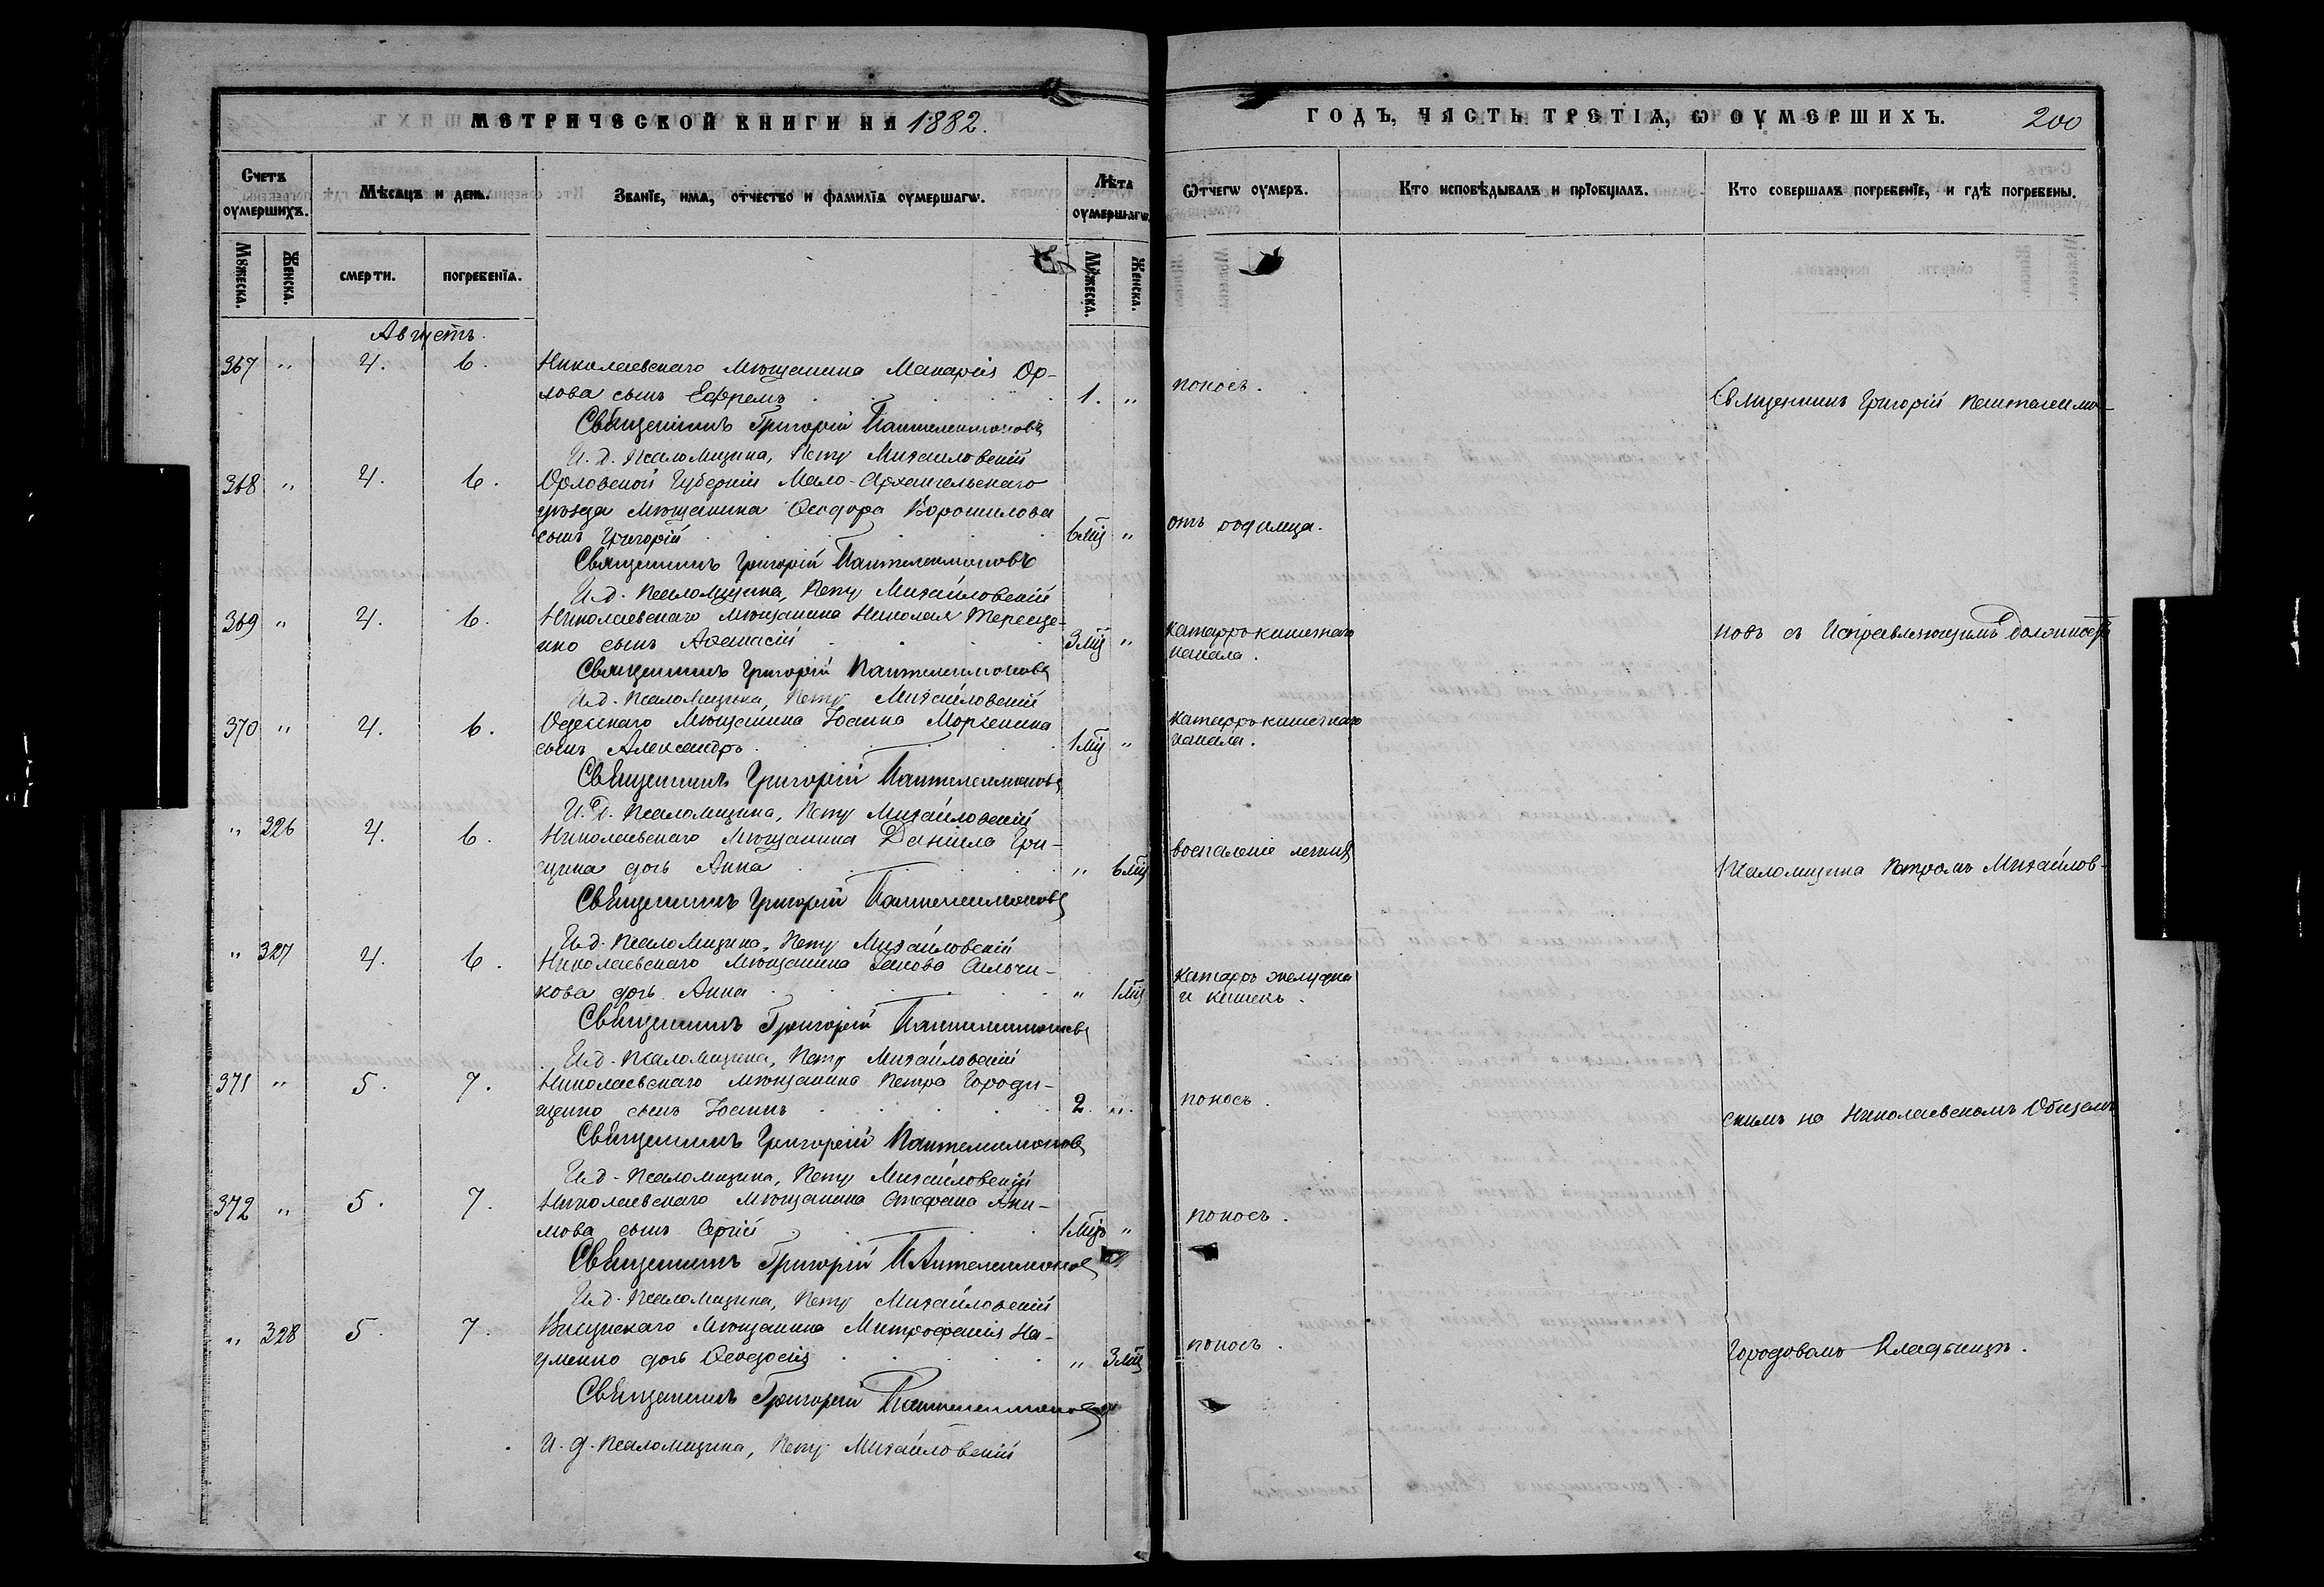 МЕТРИЧЕСКОЙ КНИГИ НА 1882.
Счетъ оумершихъ.
Мѣсяцъ и день.
Званїе, имя, отчество и фамилїя оумершагѡ.
Лѣта оумершагѡ.
Мꙋжеска.
Женска.
смерти.
погребенїя.
Мꙋжеска.
Женска.
Августъ.
367 " 4. 6. Николаевскаго Мѣщанина Макарія Ор-
лова сынъ Ефремъ 1. "
Священникъ Григорій Пантелеимоновъ
И. д. Псаломщика, Петръ Михайловскій
368 " 4. 6. Орловской Губерніи Мало-Архангельскаго
уѣзда Мѣщанина Ѳеодора Ворошилова
сынъ Григорій 6 мц "
Священникъ Григорій Пантелеимоновъ
И. д. Псаломщика, Петръ Михайловскій
369 " 4. 6. Николаевскаго Мѣщанина Николая Терещен-
ко сынъ Аѳанасій 3 мц "
Священникъ Григорій Пантелеимоновъ
И. д. Псаломщика, Петръ Михайловскій
370 " 4. 6. Одесскаго Мѣщанина Іоанна
сынъ Александръ 1 мц "
Священникъ Григорій Пантелеимоновъ
И. д. Псаломщика, Петръ Михайловскій
" 326 4. 6. Николаевскаго Мѣщанина Даніила Гри-
дочь Анна " 6 мц
Священникъ Григорій Пантелеимоновъ
И. д. Псаломщика, Петръ Михайловскій
" 327 4. 6. Николаевскаго Мѣщанина Іакова
кова дочь Анна " 1 мц
Священникъ Григорій Пантелеимоновъ
И. д. Псаломщика, Петръ Михайловскій
371 " 5. 7. Николаевскаго Мѣщанина Петра Городи-
щенко сынъ Іоаннъ 2. "
Священникъ Григорій Пантелеимоновъ
И. д. Псаломщика, Петръ Михайловскій
372 " 5. 7. Николаевскаго Мѣщанина Стефана Аки-
мова сынъ Сергій 1 мц "
Священникъ Григорій Пантелеимоновъ
И. д. Псаломщика, Петръ Михайловскій
" 328 5. 7. Мѣщанина Митрофанія На-
уменко дочь Ѳеодосія " 3 мц
Священникъ Григорій Пантелеимоновъ
И. д. Псаломщика, Петръ Михайловскій
ГОДЪ, ЧАСТЬ ТРЕТІЯ, Ѡ ОУМЕРШИХЪ. 200
Ѿтчегѡ оумеръ.
Кто исповѣдывалъ и прїобщалъ.
Кто совершалъ погребенїе, и гдѣ погребены.
поносъ.
Священникъ Григорій Пантелеимо-
отъ родимца.
катарръ кишечнаго
канала.
новъ съ Исправляющимъ Должность
катарръ кишечнаго
канала.
воспаленіе легкихъ
Псаломщика Петромъ Михайлов-
катарръ желудка
и кишекъ.
поносъ.
скимъ на Николаевскомъ Общемъ
поносъ.
поносъ.
Городовомъ Кладбищѣ.